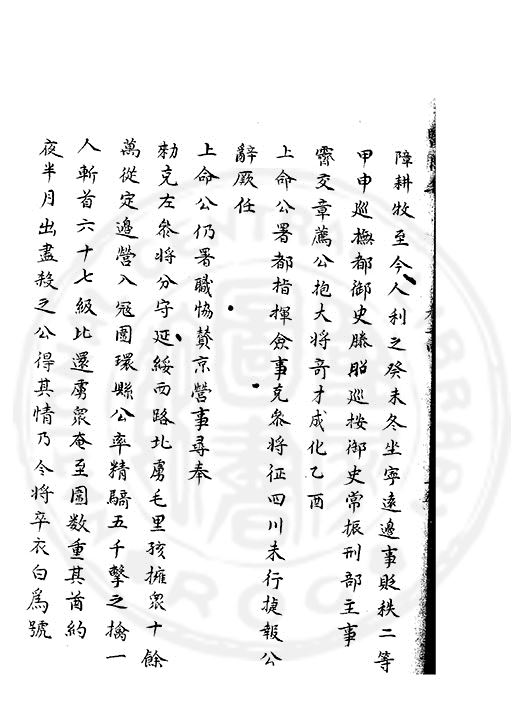 障耕牧至今人利之癸未冬坐寧遠邊事貶秩二等
甲申巡撫都御史滕昭巡按御史常振刑部主事
霽交章薦公抱大將竒才成化乙酉
上命公署都指揮僉事充叅將征四川未行㨗報公
辭厥任
上命公仍署職恊賛京營事尋奉
勑充左叅將分守延綏西路北虜毛里孩擁衆十餘
萬從定邊營入冦圍環縣公率精騎五千擊之擒一
人斬首六十七級比還虜衆奄至圍数重其酋約
夜半月出盡殺之公得其情乃令將卒衣白為號